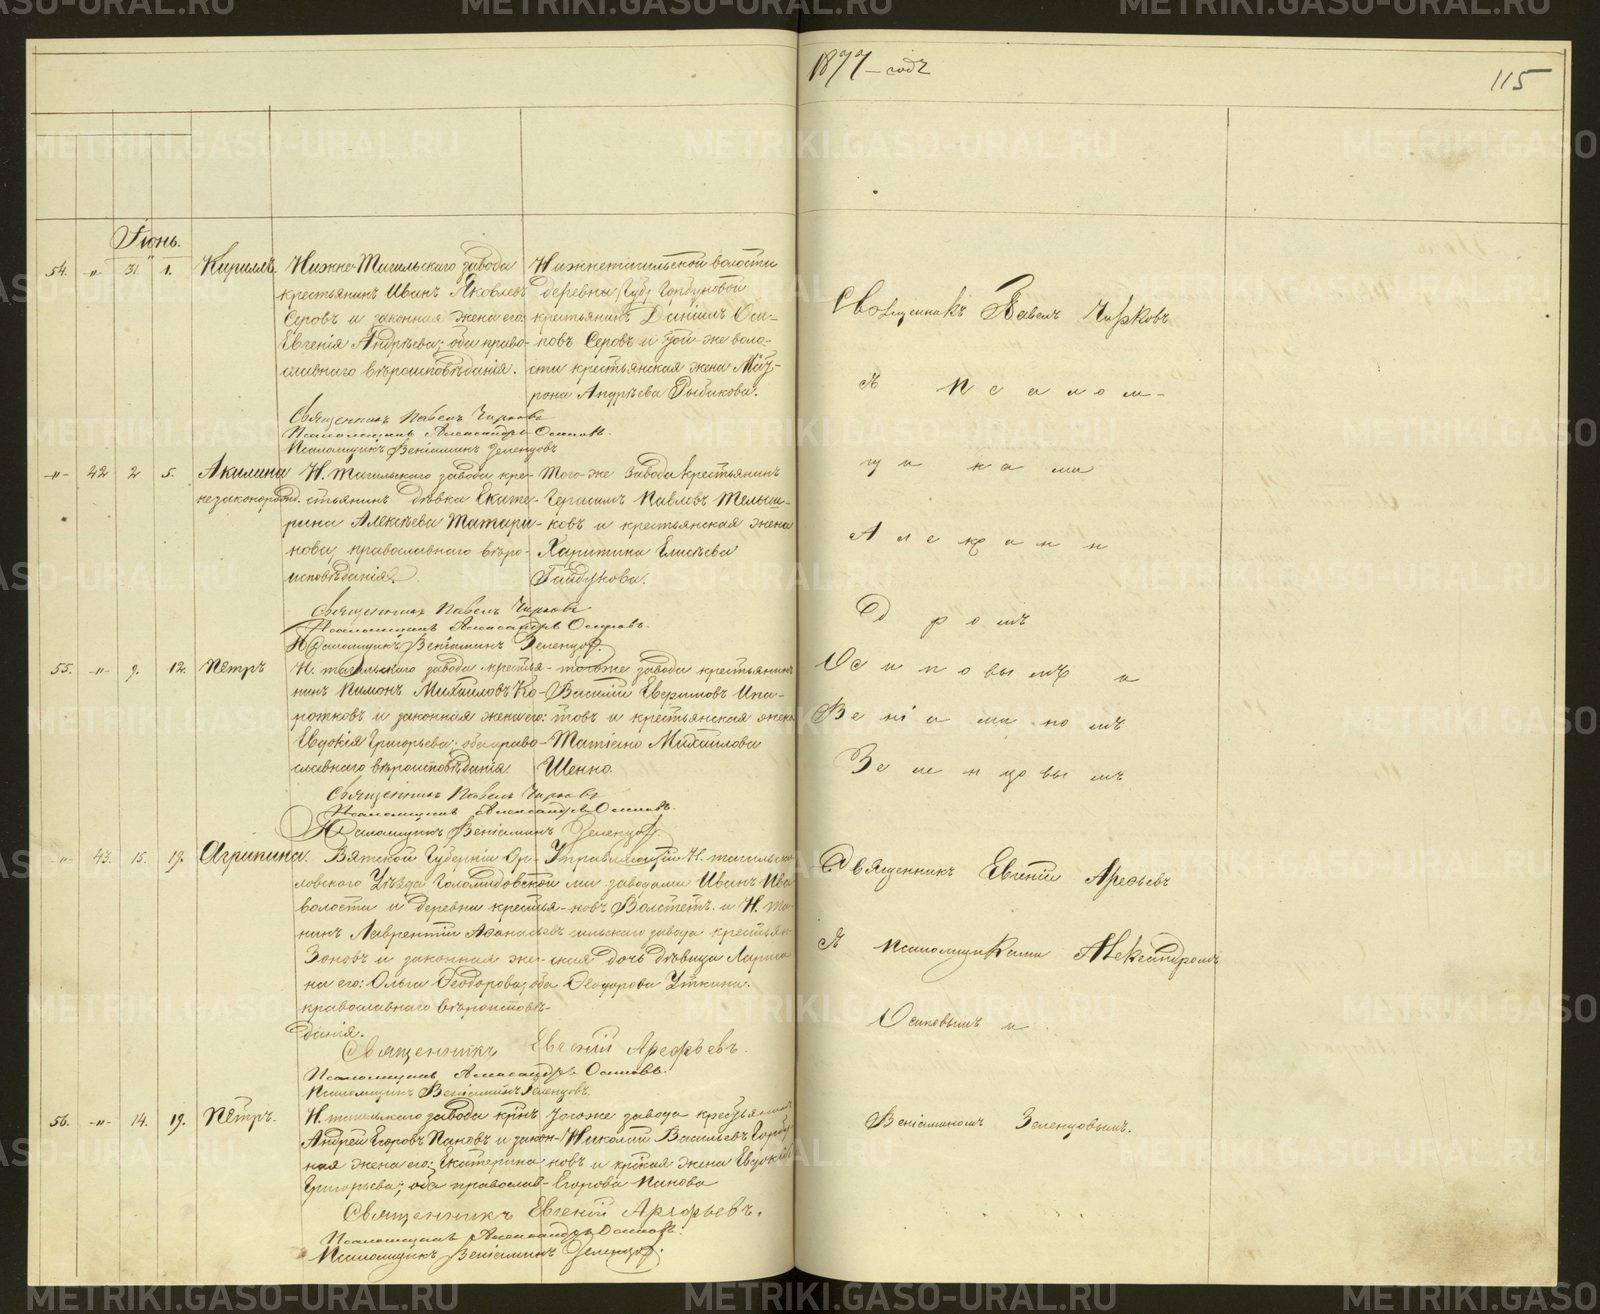 1877 – годъ
115
Іюнь.
54. -„- 31 1. Кириллъ. Нижне-Тагильскаго завода
крестьянинъ Иванъ Яковлевъ
Серовъ и законная жена его:
Евгенія Андрѣева; оба право-
славнаго вѣроисповѣданія.
Нижнетагильской волости
деревни Горбуновой
крестьянинъ Даніилъ Оси-
повъ Серовъ и той-же воло-
сти крестьянская жена Мат-
рона Андрѣева Рыбакова.
Священникъ Павелъ Чирковъ
Псаломщикъ Александръ Осиповъ.
Псаломщикъ Веніаминъ Зеленцовъ
-„- 42 2 5. Акилина
незаконорожд.
Н. Тагильскаго завода кре-
стьянинъ дѣвка Екате-
рина Алексѣева Татари-
нова, православнаго вѣро-
исповѣданія.
Того-же завода крестьянинъ
Герасимъ Павловъ Мельни-
ковъ и крестьянская жена
Харитина Елисѣева
Гайдукова.
Священникъ Павелъ Чирковъ
Псаломщикъ Александръ Осиповъ.
Псаломщикъ Веніаминъ Зеленцовъ.
55. -„- 9. 12. Петръ
Н. тагильскаго завода крестья-
нинъ Пимонъ Михайловъ Ко-
ротковъ и законная жена его:
Евдокія Григорьева; оба право-
славнаго вѣроисповѣданія.
тогоже завода крестьянинъ
Василій Евфимовъ Ипа-
товъ и крестьянская жена
Михайлова
Священникъ Павелъ Чирковъ
Псаломщикъ Александръ Осиповъ.
Псаломщикъ Веніаминъ Зеленцовъ.
-„- 43. 15. 19. Агрипина.
Вятской Губерніи Ор-
ловскаго Уѣзда
волости и деревни крестья-
нинъ Лаврентій Афанасьевъ
Зоновъ и законная же-
на его: Ольга Феодорова; оба
православнаго вѣроисповѣ-
данія.
Управляющій Н. тагильски-
ми заводами Иванъ Ива-
новъ и Н. та-
гильскаго завода крестьян-
ская дочь дѣвица
Феодорова Уткина.
Священникъ Евгеній Арефьевъ.
Псаломщикъ Александръ Осиповъ.
Псаломщикъ Веніаминъ Зеленцовъ.
56. -„- 14. 19. Петръ.
Н. тагильскаго завода крнъ
Андрей Егоровъ Пановъ и закон-
ная жена его: Екатерина
Григорьева; оба православ-
Тогоже завода крестьянинъ
Николай Васильевъ
новъ и крская жена Евдокія
Егорова Панова
Священникъ Евгеній Арефьевъ.
Псаломщикъ Александръ Осиповъ.
Псаломщикъ Веніаминъ Зеленцовъ.
Священникъ Павелъ Чирковъ
съ псалом-
щиками
Александ
ромъ
Осиповымъ и
Веніаминомъ
Зеленцовымъ
Священникъ Евгеній Арефьевъ
съ псаломщиками Александромъ
Осиповымъ и
Веніаминомъ Зеленцовымъ.
METRIKI.GASO-URAL.RU